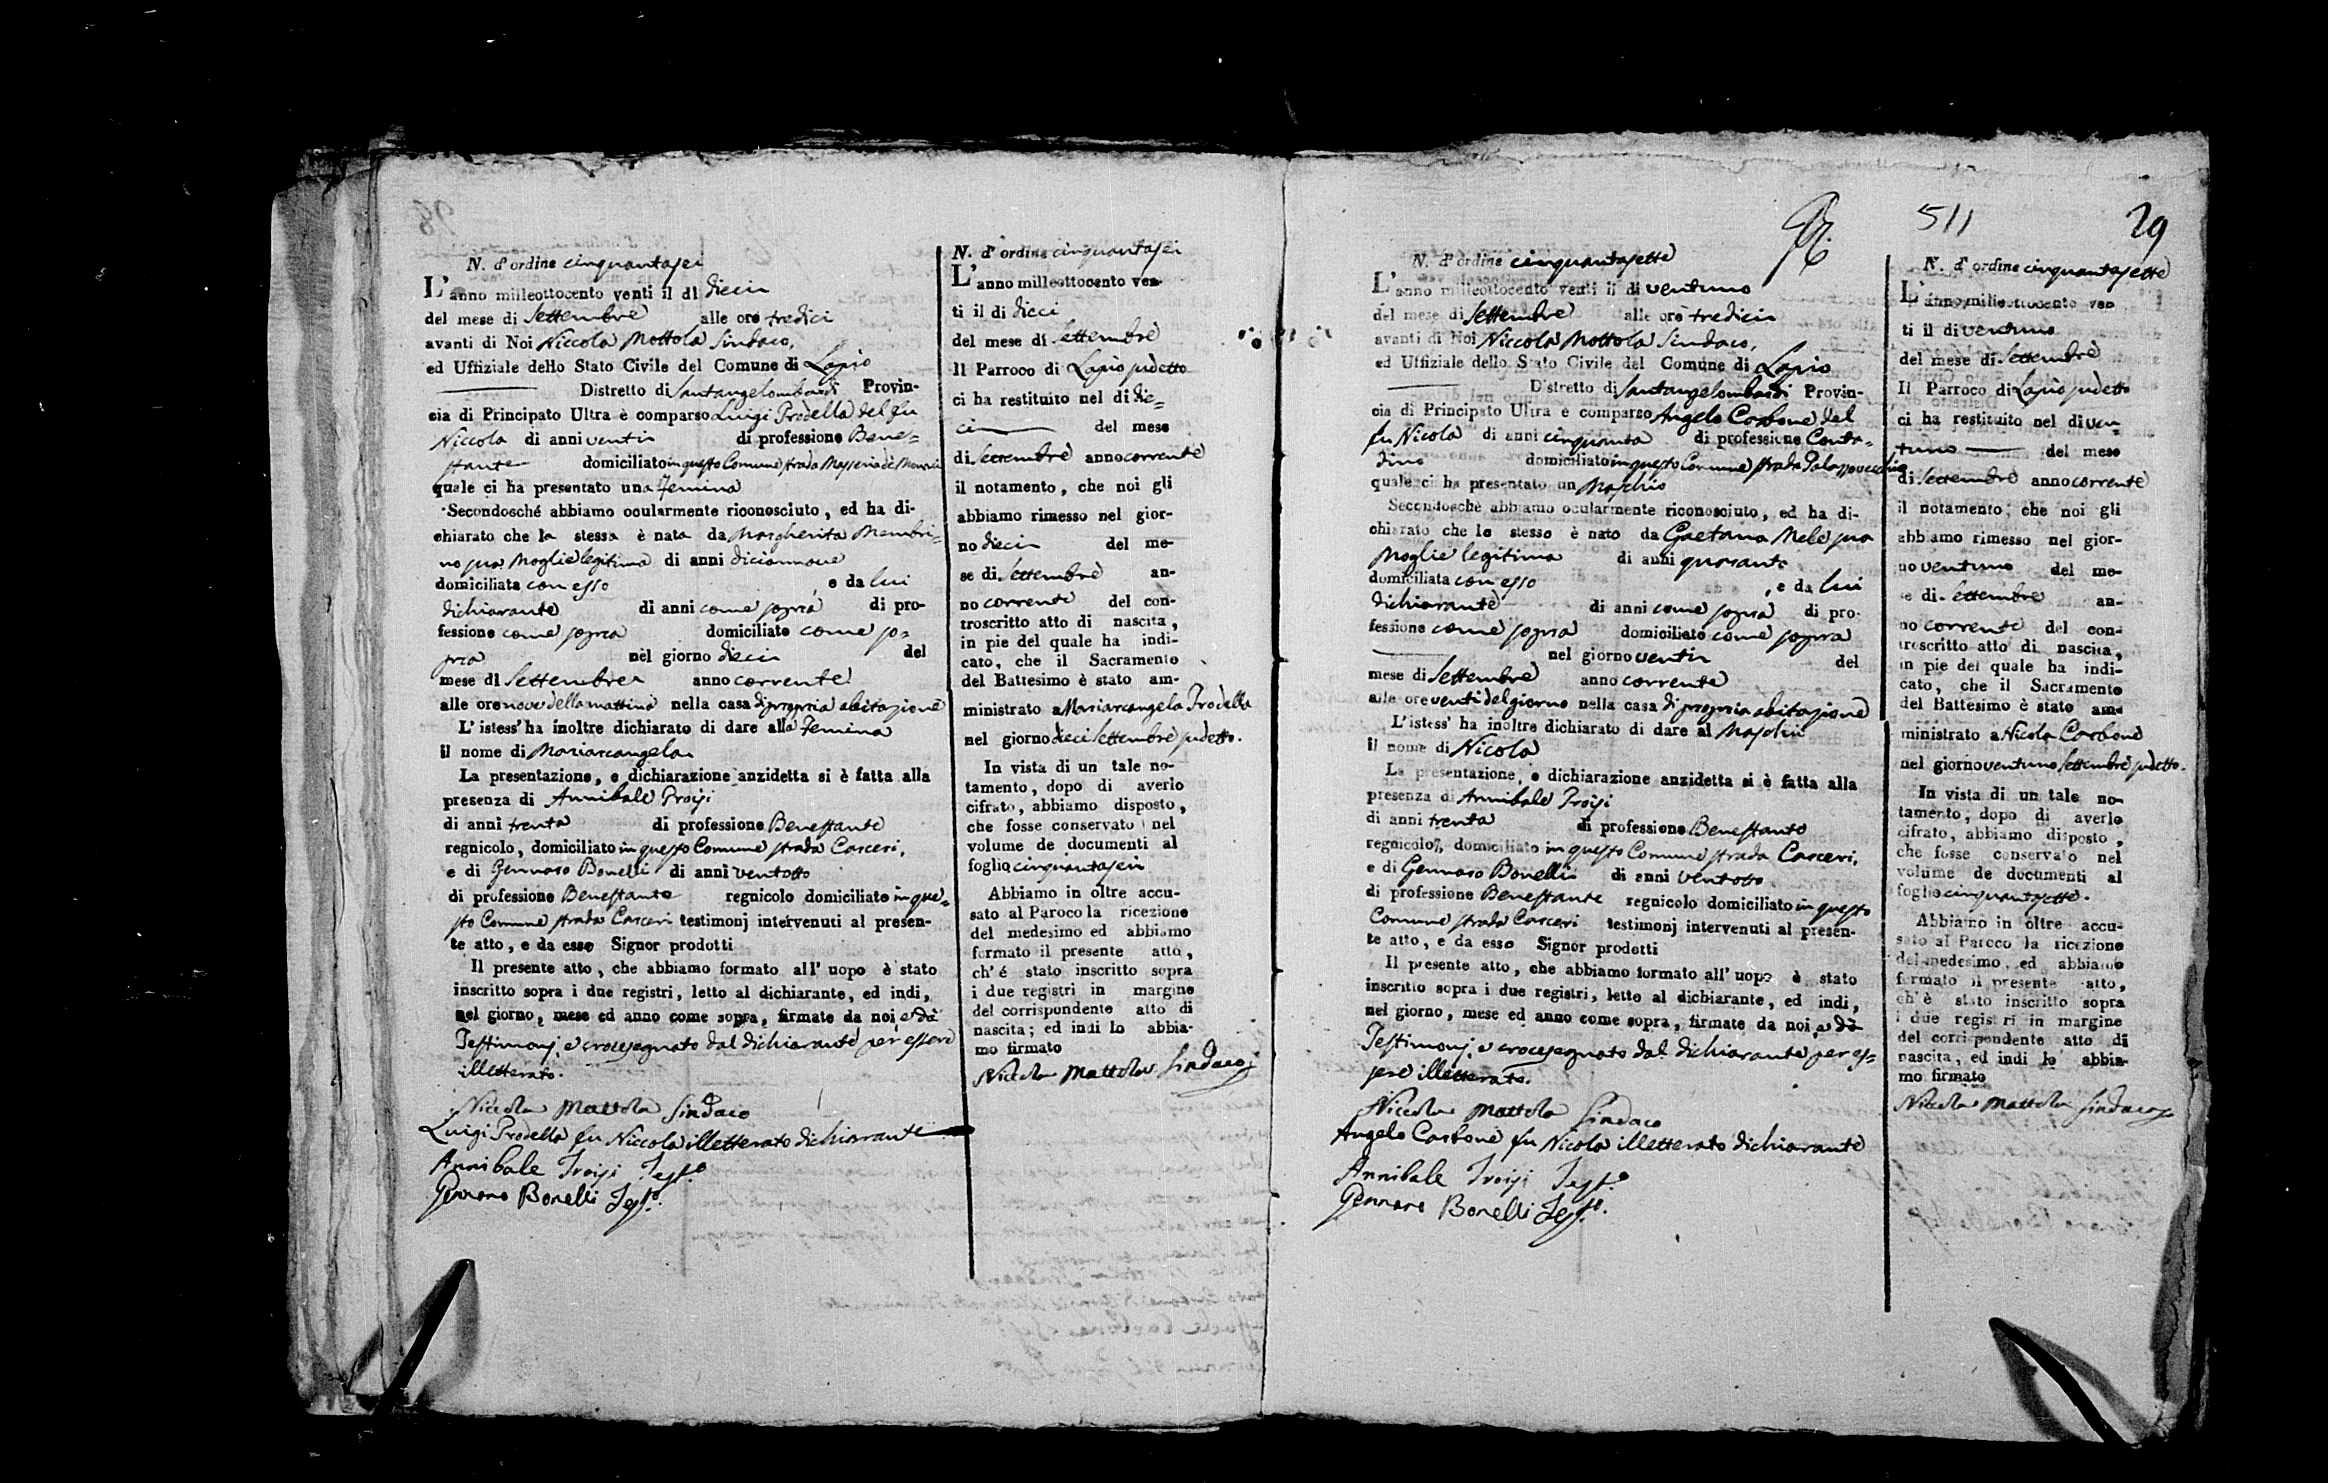 N. d'ordine cinquantasei
L'anno milleottocento venti il dì dieci
del mese di Settembre alle ore tredici
avanti di Noi Niccola Mottola Sindaco,
ed Uffiziale dello Stato Civile del Comune di Lapio
Distretto di Santangelombardi Provin-
cia di Principato Ultra è comparso Luigi Prodella del fu
Niccola di anni venti di professione Bene=
stante domiciliato in questo Comune strada Masseria de
quale ci ha presentato una Femina
Secondosché abbiamo ocularmente riconosciuto, ed ha di-
chiarato che la stessa è nata da Margherita Membri=
no sua Moglie legitima di anni diciannove
domiciliata con esso , e da lui
dichiarante di anni come sopra di pro-
fessione come sopra domiciliato come so=
pra nel giorno dieci del
mese di Settembre anno corrente
alle ore nove della mattina nella casa di propria abitazione
L'istess' ha inoltre dichiarato di dare alla Femina
il nome di Mariarcangela
La presentazione, e dichiarazione anzidetta si è fatta alla
presenza di Annibale Troisi
di anni trenta di professione Benestante
regnicolo, domiciliato in questo Comune strada Carceri,
e di Gennaro Bonelli di anni ventotto
di professione Benestante regnicolo domiciliato in que=
sto Comune strada Carceri testimonj intervenuti al presen-
te atto, e da esso Signor prodotti
Il presente atto, che abbiamo formato all' uopo è stato
inscritto sopra i due registri, letto al dichiarante, ed indi,
nel giorno, mese ed anno come sopra, firmato da noi, e da
Testimonj, e crocesegnato dal dichiarante per essere
illetterato.
Niccola Mottola Sindaco
Luigi Prodella fu Niccola illetterato dichiarante
Annibale Troisi Test.o
Gennaro Bonelli Test.o
N. d'ordine cinquantasei
L'anno milleottocento ven-
ti il di dieci
del mese di Settembre
Il Parroco di Lapio sudetto
ci ha restituito nel di die=
ci del mese
di Settembre anno corrente
il notamento, che noi gli
abbiamo rimesso nel gior-
no dieci del me-
se di Settembre an-
no corrente del con-
troscritto atto di nascita,
in pie del quale ha indi-
cato, che il Sacramento
del Battesimo è stato am-
ministrato a Mariarcangela Prodella
nel giorno dieci Settembre sudetto.
In vista di un tale no-
tamento, dopo di averlo
cifrato, abbiamo disposto,
che fosse conservato nel
volume de documenti al
foglio cinquantasei
Abbiamo in oltre accu-
sato al Paroco la ricezione
del medesimo ed abbiamo
formato il presente atto,
ch'é stato inscritto sopra
i due registri in margine
del corrispondente atto di
nascita; ed indi lo abbia-
mo firmato
Niccola Mottola Sindaco
511
29
N. d'ordine cinquantasette
L'anno milleottocento venti il di ventuno
del mese di Settembre alle ore tredici
avanti di Noi Niccola Mottola Sindaco,
ed Uffiziale dello Stato Civile del Comune di Lapio
Distretto di Santangelombardi Provin-
cia di Principato Ultra è comparso Angelo Carbone del
fu Nicola di anni cinquanta di professione Conta-
dino domiciliato in questo Comune strada Palazzovecchio
quale ci ha presentato un Maschio
Secondosché abbiamo ocularmente riconosciuto, ed ha di-
chiarato che lo stesso è nato da Gaetana Mele sua
Moglie legitima di anni quaranta
domiciliata con esso , e da lui
dichiarante di anni come sopra di pro-
fessione come sopra domiciliato come sopra
nel giorno venti del
mese di Settembre anno corrente
alle ore venti del giorno nella casa di propria abitazione
L'istess' ha inoltre dichiarato di dare al Maschio
il nome di Nicola
La presentazione, e dichiarazione anzidetta si è fatta alla
presenza di Annibale Troisi
di anni trenta di professione Benestante
regnicolo, domiciliato in questo Comune strada Carceri,
e di Gennaro Bonelli di anni ventotto
di professione Benestante regnicolo domiciliato in questo
Comune strada Carceri testimonj intervenuti al presen-
te atto, e da esso Signor prodotti
Il presente atto, che abbiamo formato all' uopo è stato
inscritto sopra i due registri, letto al dichiarante, ed indi,
nel giorno, mese ed anno come sopra, firmato da noi, e da
Testimonj, e crocesegnato dal dichiarante per es=
sere illetterato.
Niccola Mottola Sindaco
Angelo Carbone fu Nicola illetterato dichiarante
Annibale Troisi Test.o
Gennaro Bonelli Test.o
N. d'ordine cinquantasette
L'anno milleottocento ven
ti il di ventuno
del mese di Settembre
Il Parroco di Lapio sudetto
ci ha restituito nel di ven=
tuno del mese
di Settembre anno corrente
il notamento, che noi gli
abbiamo rimesso nel gior-
no ventuno del me-
se di Settembre an-
no corrente del con-
troscritto atto di nascita,
in pie del quale ha indi-
cato, che il Sacramento
del Battesimo è stato am-
ministrato a Nicola Carbone
nel giorno ventuno Settembre sudetto.
In vista di un tale no-
tamento, dopo di averlo
cifrato, abbiamo disposto,
che fosse conservato nel
volume de documenti al
foglio cinquantasette.
Abbiamo in oltre accu-
sato al Paroco la ricezione
del medesimo, ed abbiamo
formato il presente atto,
ch'è stato inscritto sopra
i due registri in margine
del corrispondente atto di
nascita, ed indi lo abbia-
mo firmato
Niccola Mottola Sindaco